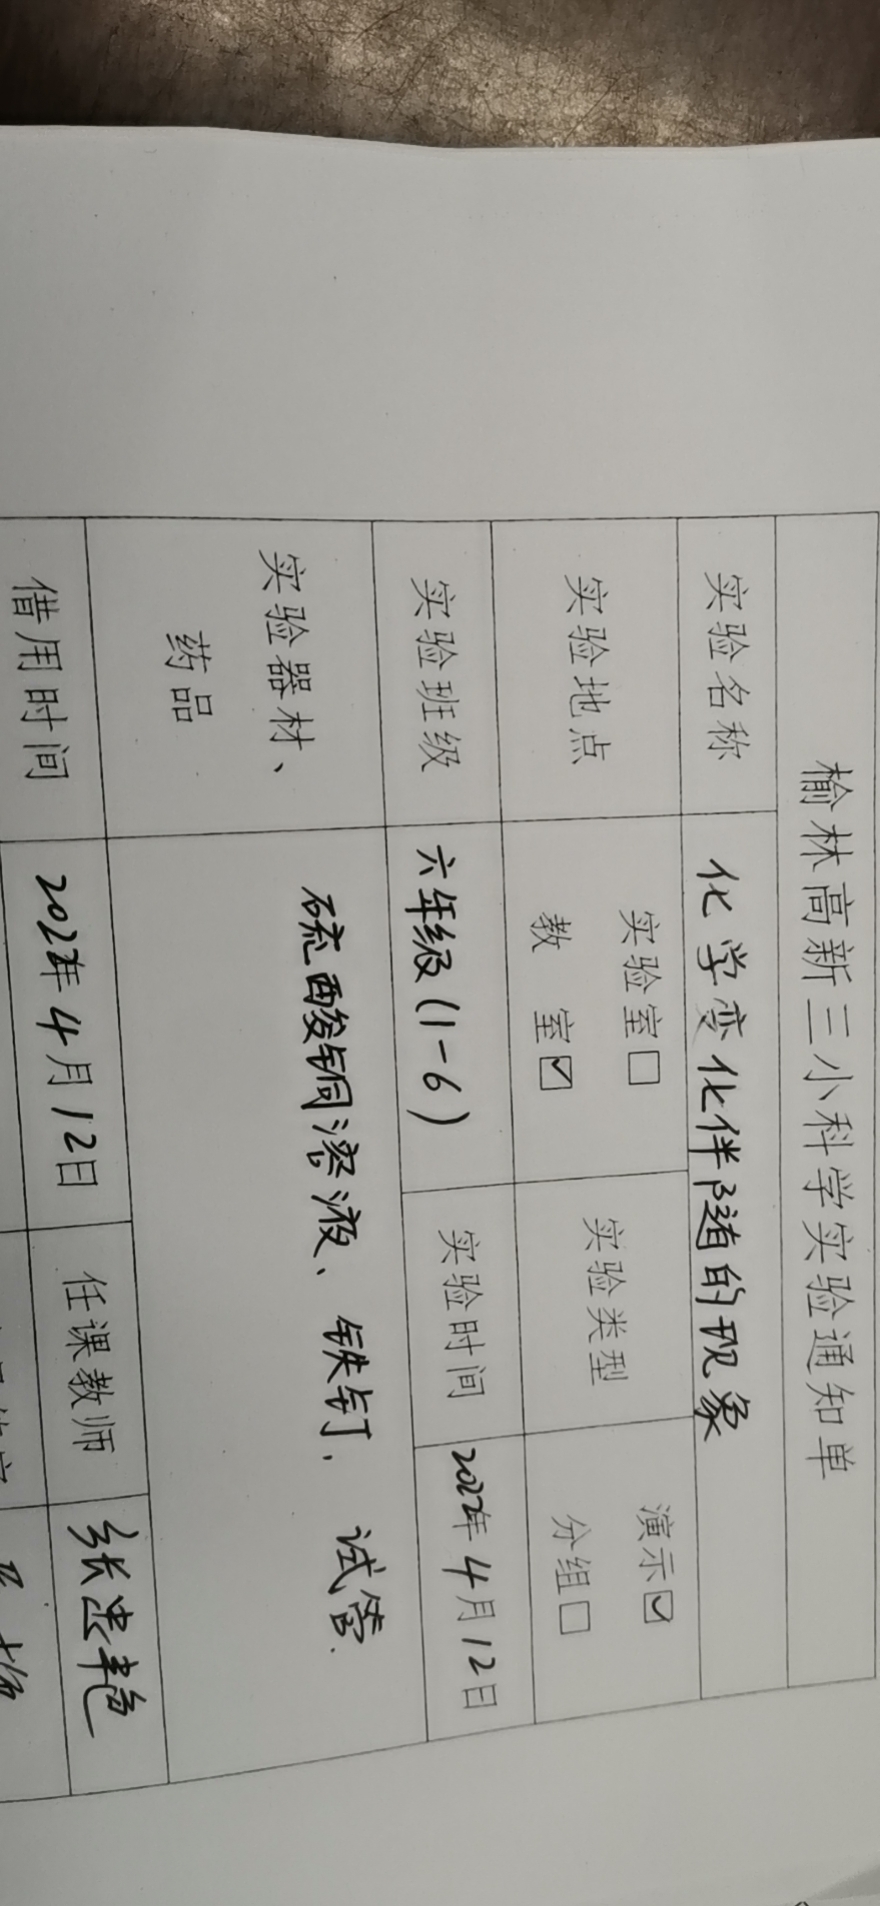 榆林高新三小科学实验通知单
实验名称 化学变化伴随的现象
实验地点 实验室□ 教 室☑ 实验类型 演示☑ 分组□
实验班级 六年级(1-6) 实验时间 2022年4月12日
实验器材、药品 硫酸铜溶液、铁钉、试管.
借用时间 2022年4月12日 任课教师 张忠艳